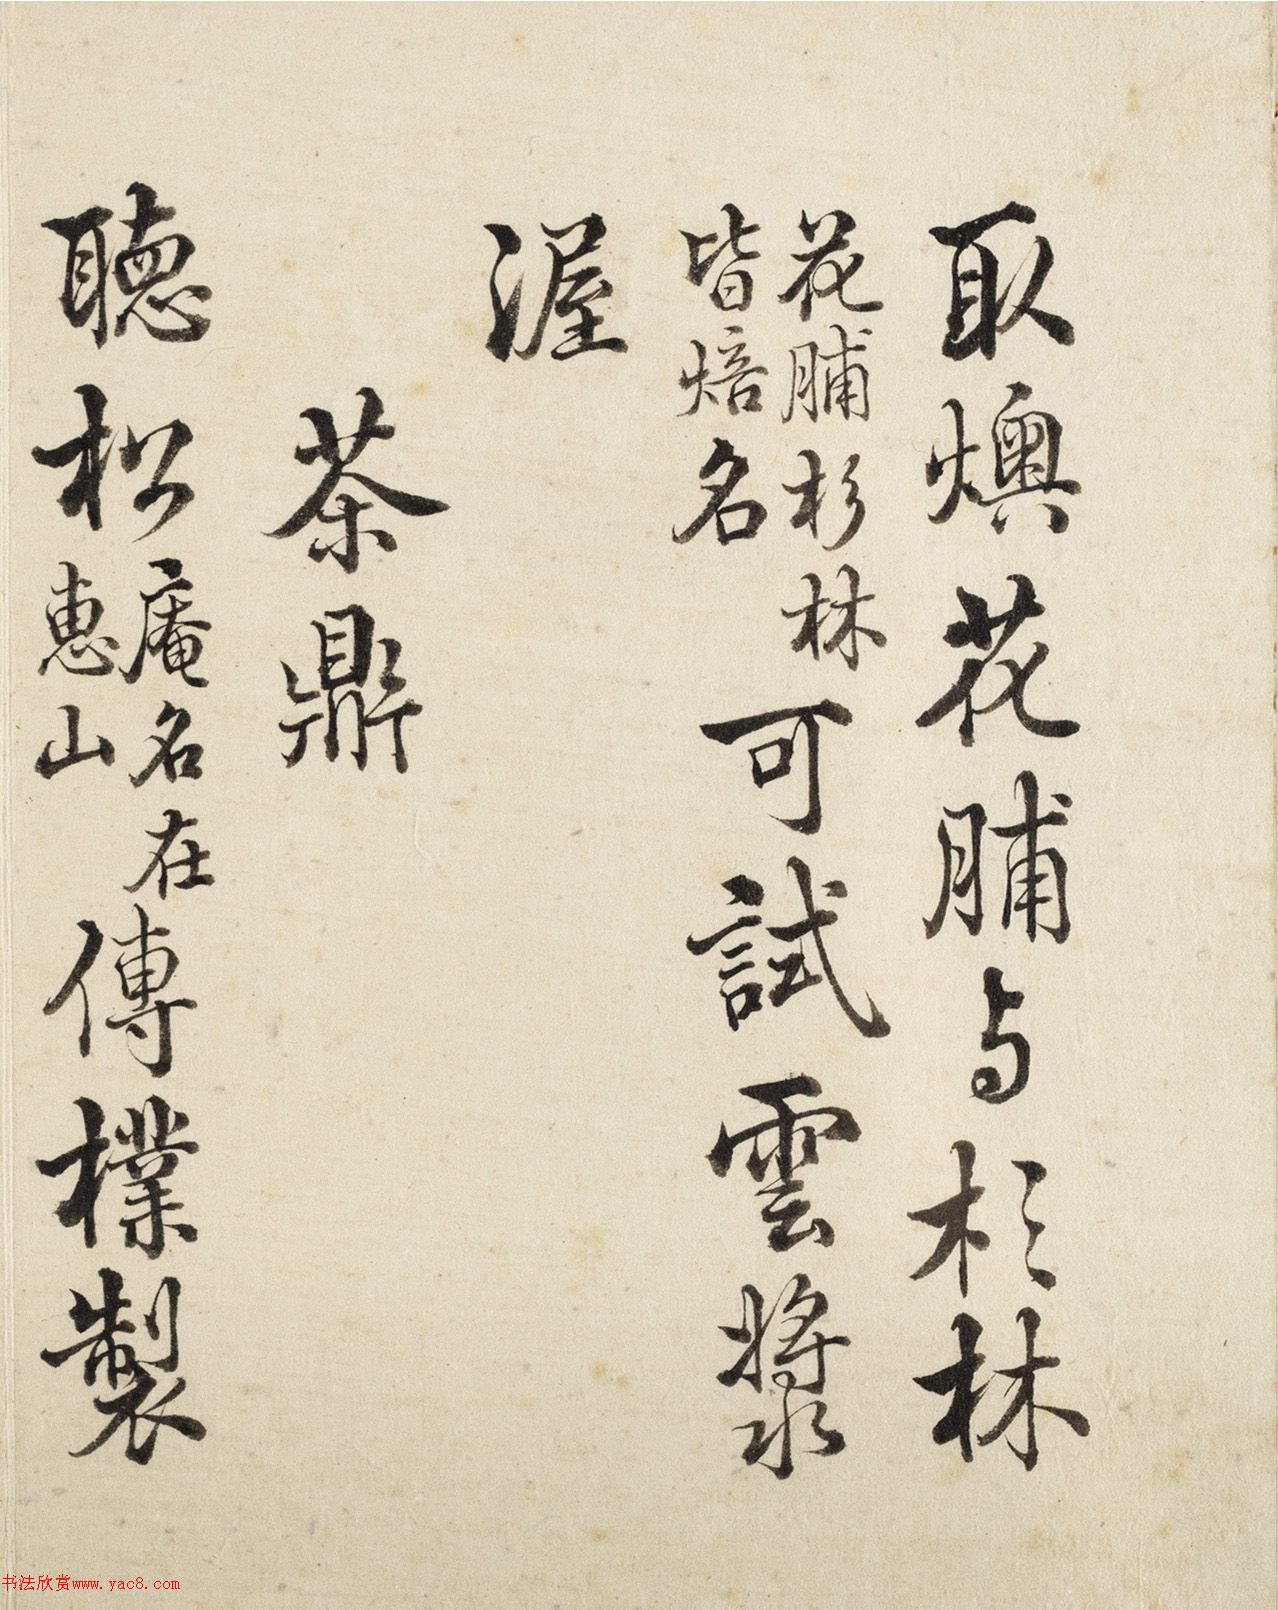 取燠花脯与杉林
花脯杉林
皆焙名
可試雲漿
渥
茶鼎
聽松
庵名在
惠山
傳樸製
书法欣赏www.yac8.com